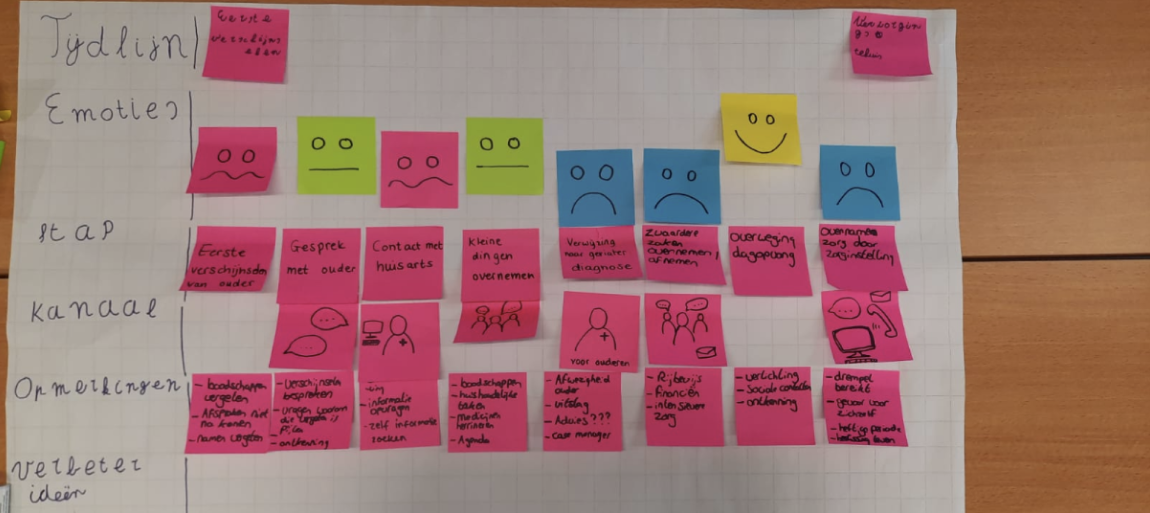 Tijdlijn
Eerste
verschijns
elen
Emoties
stap
Eerste
verschijnselen
van ouder
Gesprek
met ouder
Contact met
huisarts
Kleine
dingen
overnemen
Verwijzing
naar geriater
diagnose
Zwaardere
zaken
overnemen /
afnemen
Overweging
dagopvang
Overname
zorg door
zorginstelling
Kanaal
voor ouderen
Opmerkingen
- boodschappen
vergeten
- Afspraken niet
na komen
- namen vergeten
- verschijnselen
bespreken
- vragen waarom
die
- ontkenning
- informatie
opvragen
- zelf informatie
zoeken
- boodschappen
- huishoudelijke
taken
- medicijnen
herinneren
- Agenda
- Afwezigheid
ouder
- uitslag
- Advies???
- case manager
- Rijbewijs
- financiën
- intensievere
zorg
- verlichting
- Sociale contacten
- ontkenning
- drempel
bereikt
- gevaar voor
zichzelf
- heftige periode
verbeter
ideën